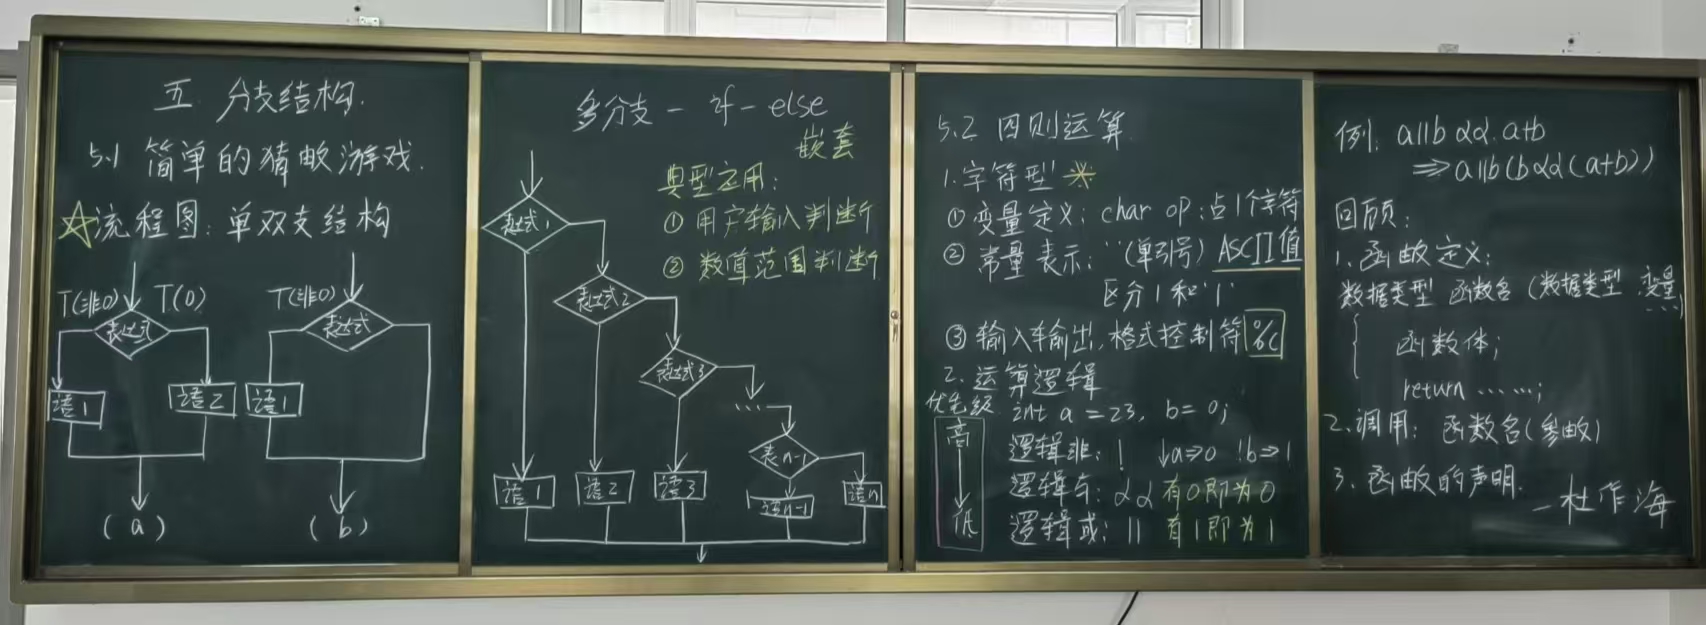 五 分支结构.
5.1 简单的猜数游戏.
☆流程图: 单双支结构
T(非0) T(0)
表达式
语1 语2
(a)
T(非0)
表达式
语1
(b)
多分支 - if - else
嵌套
典型应用:
① 用户输入判断
② 数值范围判断
表达式1
表达式2
表达式3
...
表n-1
语1 语2 语3 语n-1 语n
5.2 四则运算.
1.字符型 *
① 变量定义: char op; 占1个字符
② 常量表示: ' '(单引号) ASCII值
区分 1 和 '1'
③ 输入输出, 格式控制符 %c
2. 运算逻辑
优先级 int a = 23, b = 0;
高 逻辑非: ! !a⇒0 !b⇒1
逻辑与: && 有0即为0
低 逻辑或: || 有1即为1
例: a||b && a+b
⇒a||b(b&&(a+b))
回顾:
1. 函数定义:
数据类型 函数名 (数据类型 变量,...)
{
函数体;
return ......;
2.调用: 函数名(参数)
3. 函数的声明.
- 杜作海